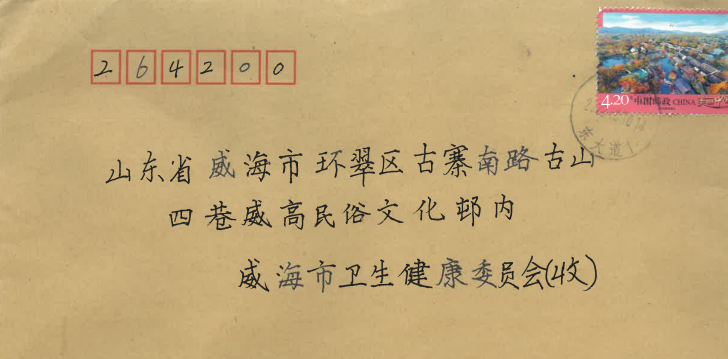 264200
4.20 中国邮政 CHINA
山东省威海市环翠区古寨南路古山
四巷威高民俗文化邨内
威海市卫生健康委员会(收)